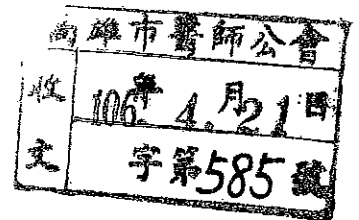 高雄市醫師公會
收文
106年4月21日
字第585號